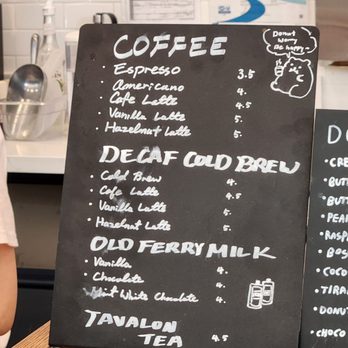 COFFEE
Donut
Worry
Be happy~
• Espresso 3.5
• Americano 4.
• Cafe Latte 4.5
• Vanilla Latte 5.
• Hazelnut Latte 5.
DECAF COLD BREW
• Cold Brew 4.
• Cafe Latte 4.5
• Vanilla Latte 5.
• Hazelnut Latte 5.
OLD FERRY MILK
• Vanilla 4.
• Chocolate 4.
• Mint White Chocolate 4.
TAVALON
TEA 4.5
D
• CRE
• BUTT
• BUTT
• PEAN
• RASP
BOS
• COCO
• TIRA
• DONUT
• CHOCO